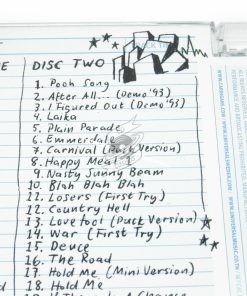 DISC TWO
1. Pooh Song
2. After All... (Demo '93)
3. I Figured Out (Demo '93)
4. Laika
5. Plain Parade
6. Emmerdale
7. Carnival (Puck Version)
8. Happy Meal
9. Nasty Sunny Beam
10. Blah Blah Blah
11. Losers (First Try)
12. Country Hell
13. Lovefool (Puck Version)
14. War (First Try)
15. Deuce
16. The Road
17. Hold Me (Mini Version)
18. Hold Me